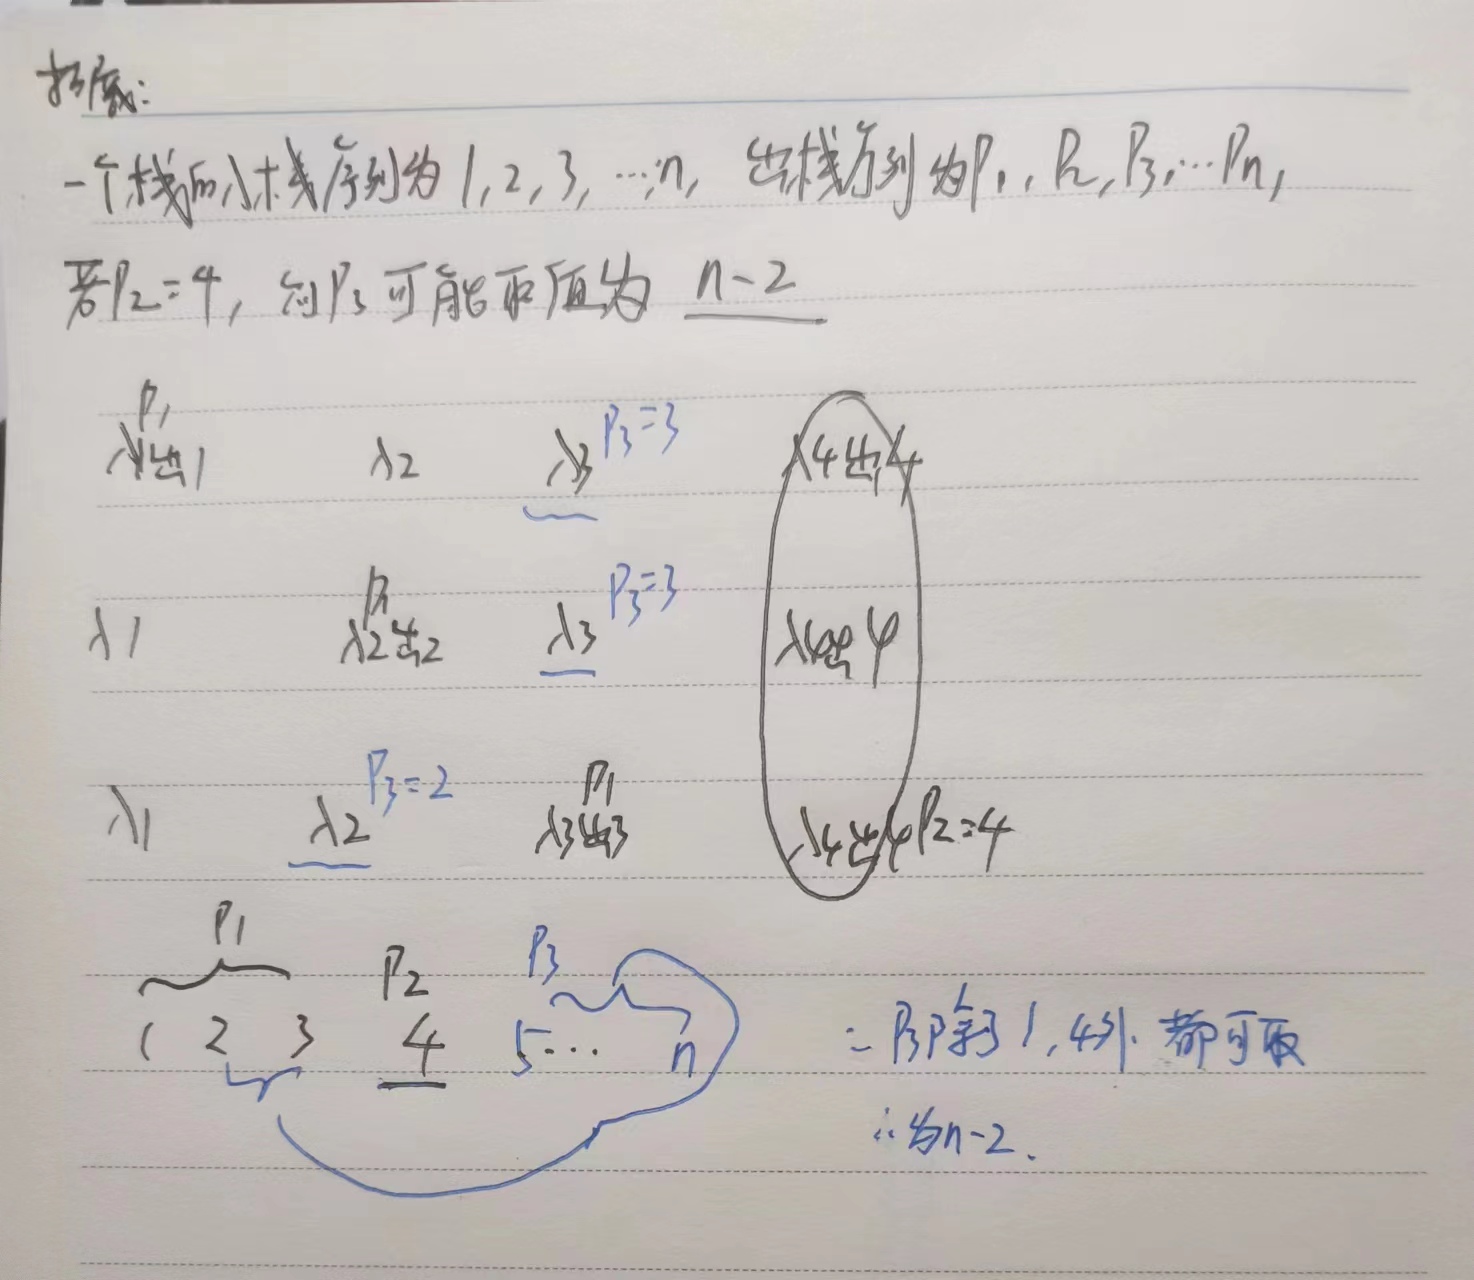 拓展:
一个栈的入栈序列为1,2,3,…,n, 出栈序列为P1,P2,P3,…Pn,
若P2=4, 则P3可能取值为 n-2
P1
入1出1 入2 入3 P3=3 入4出4
P1
入1 入2出2 入3 P3=3 入4出4
P1
入1 入2 P3=2 入3出3 入4出4 P2=4
P1 P2 P3
1 2 3 4 5… n ∴P3除了1,4外.都可取
∴为n-2.